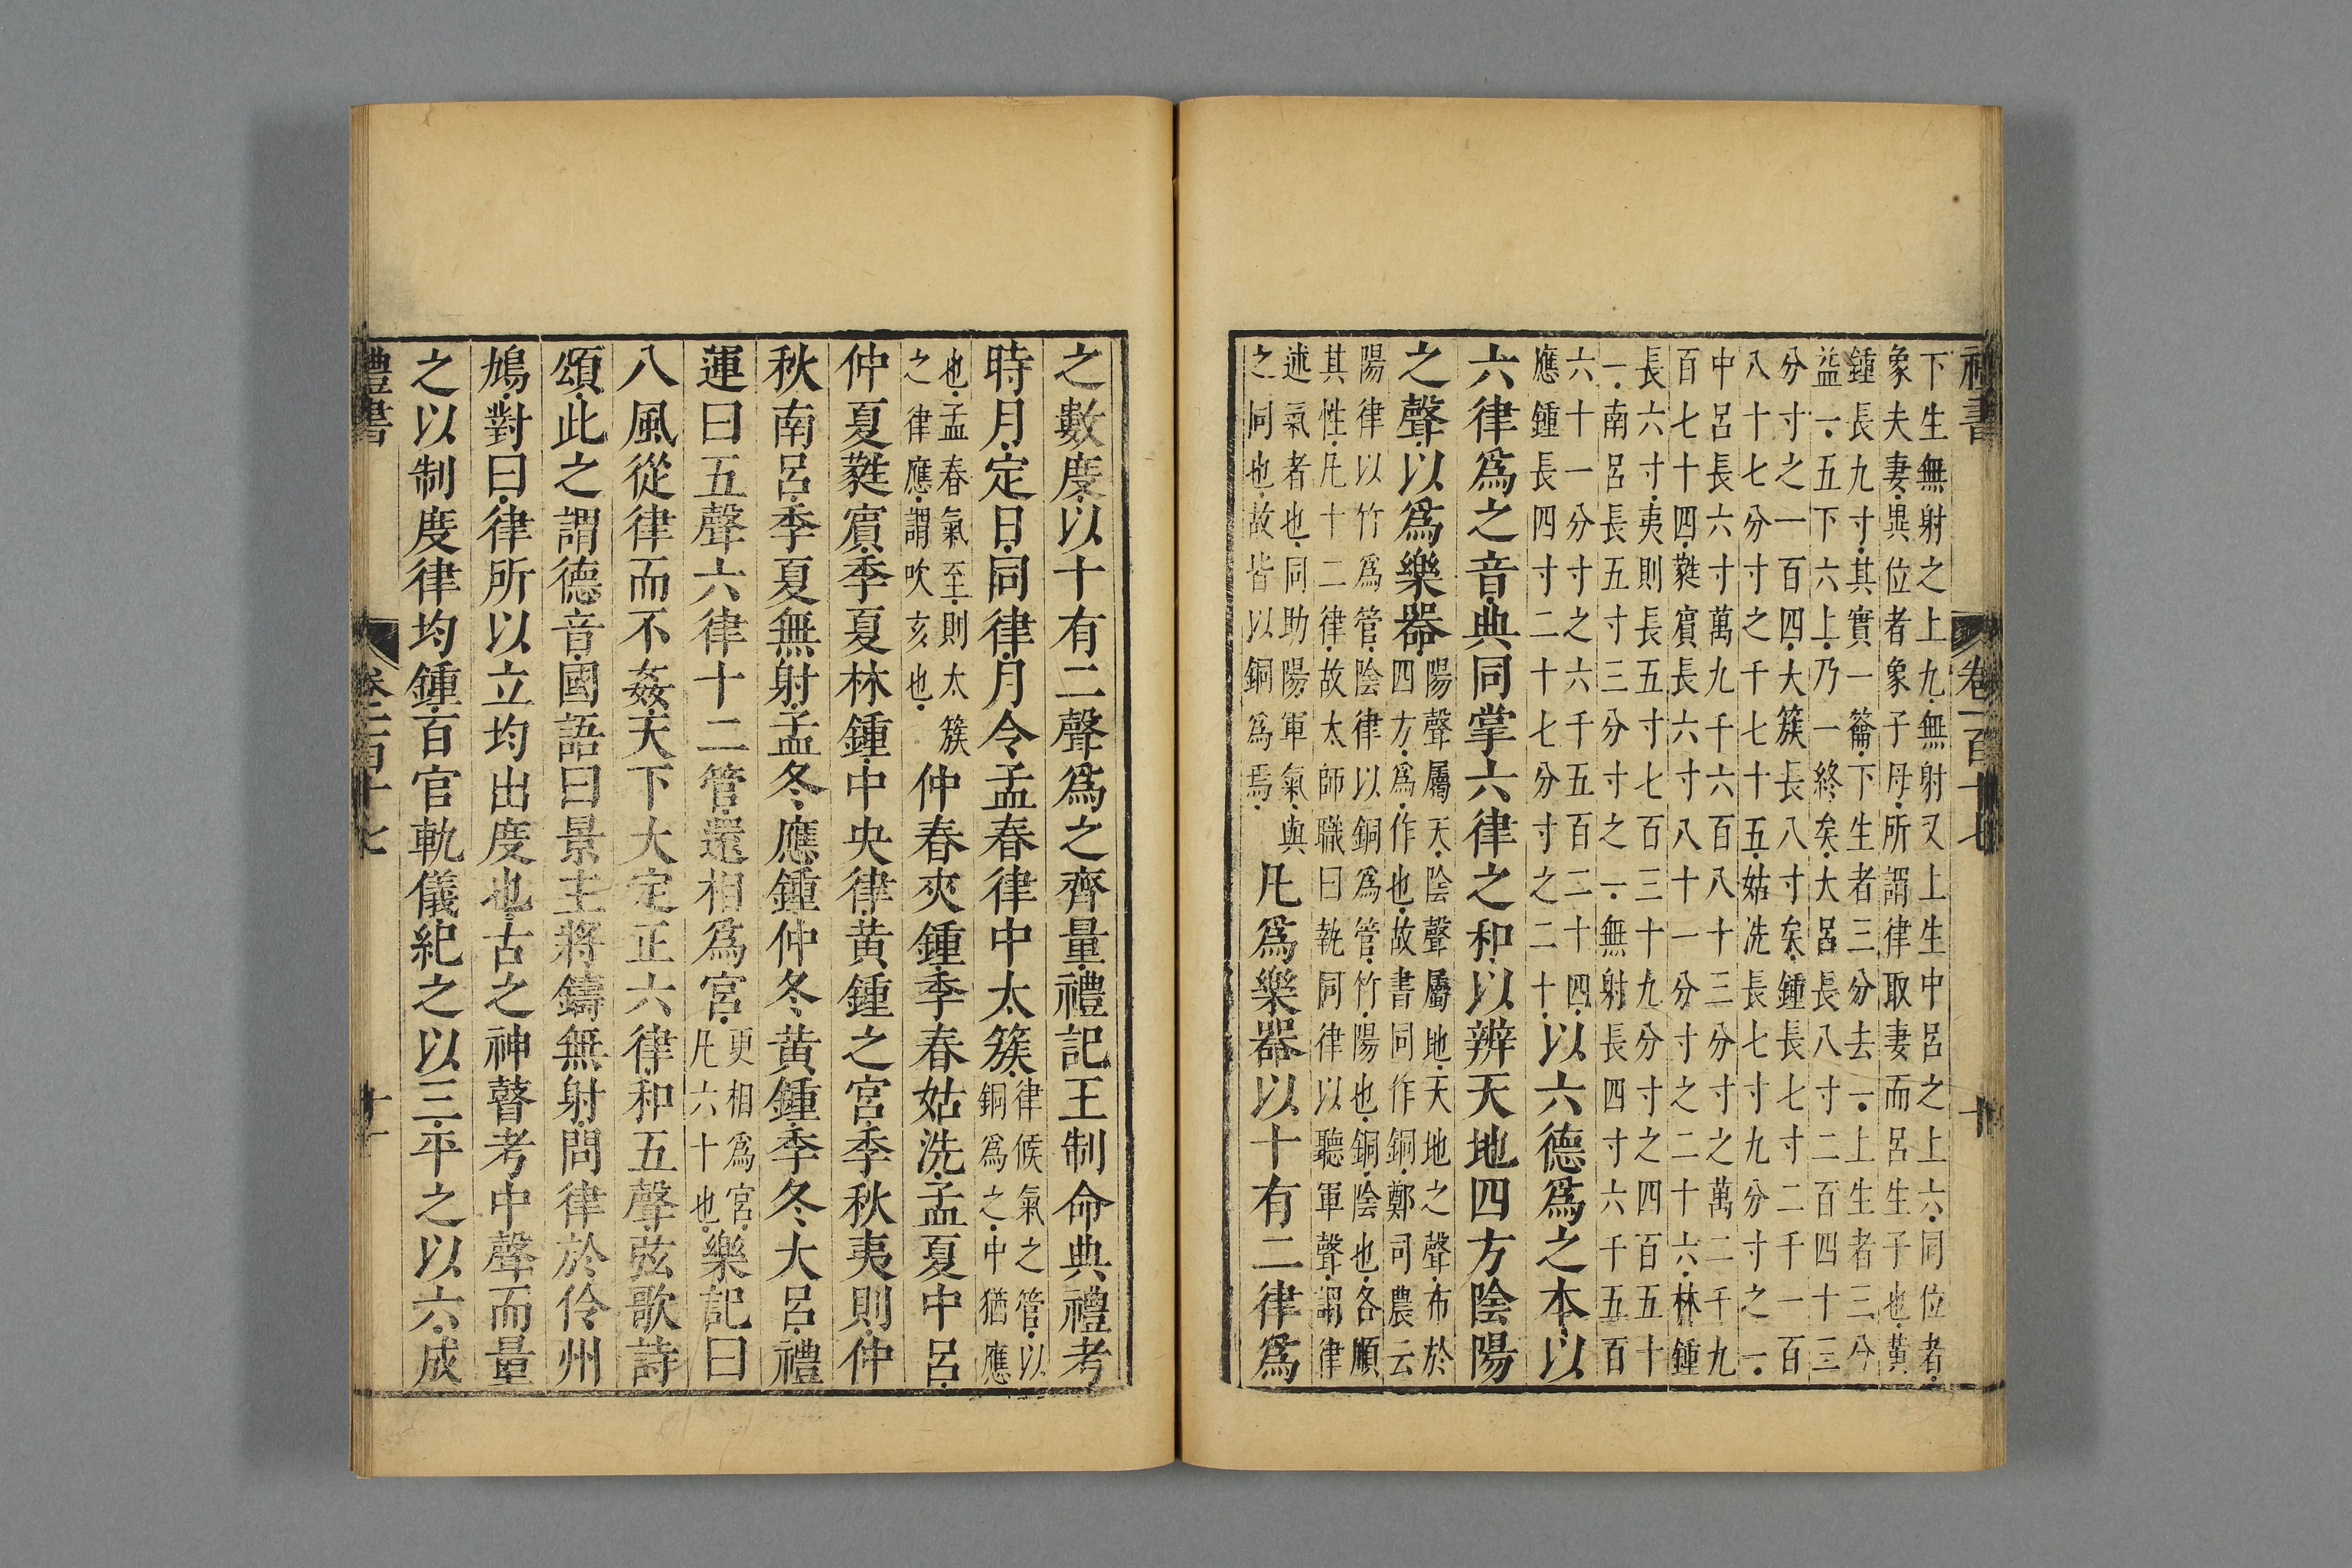 禮書
卷一百十七
十
下生無射之上九無射又上生中呂之上六同位者
象夫妻異位者象子母所謂律取妻而呂生子也黃
鍾長九寸其實一籥下生者三分去一上生者三分
益一五下六上乃一終矣大呂長八寸二百四十三
分寸之一百四大簇長八寸矣鍾長七寸二千一百
八十七分寸之千七十五姑洗長七寸九分寸之一
中呂長六寸萬九千六百八十三分寸之萬二千九
百七十四蕤賓長六寸八十一分寸之二十六林鍾
長六寸夷則長五寸七百三十九分寸之四百五十
一南呂長五寸三分寸之一無射長四寸六千五百
六十一分寸之六千五百二十四
應鍾長四寸二十七分寸之二十
以六德爲之本以
六律爲之音典同掌六律之和以辨天地四方陰陽
之聲以爲樂器
陽聲屬天陰聲屬地天地之聲布於
四方爲作也故書同作銅鄭司農云
陽律以竹爲管陰律以銅爲管竹陽也銅陰也各順
其性凡十二律故太師職曰執同律以聽軍聲謂律
述氣者也同助陽軍氣與
之同也故皆以銅爲焉
凡爲樂器以十有二律爲
之數度以十有二聲爲之齊量禮記王制命典禮考
時月定日同律月令孟春律中太簇
律候氣之管以
銅爲之中猶應
也孟春氣至則太簇
之律應謂吹亥也
仲春夾鍾季春姑洗孟夏中呂
仲夏蕤賓季夏林鍾中央律黃鍾之宮季秋夷則仲
秋南呂季夏無射孟冬應鍾仲冬黃鍾季冬大呂禮
運曰五聲六律十二管還相爲宮
更相爲宮
凡六十也
樂記曰
八風從律而不姦天下大定正六律和五聲弦歌詩
頌此之謂德音國語曰景王將鑄無射問律於伶州
鳩對曰律所以立均出度也古之神瞽考中聲而量
之以制度律均鍾百官軌儀紀之以三平之以六成
禮書
卷一百十七
十一